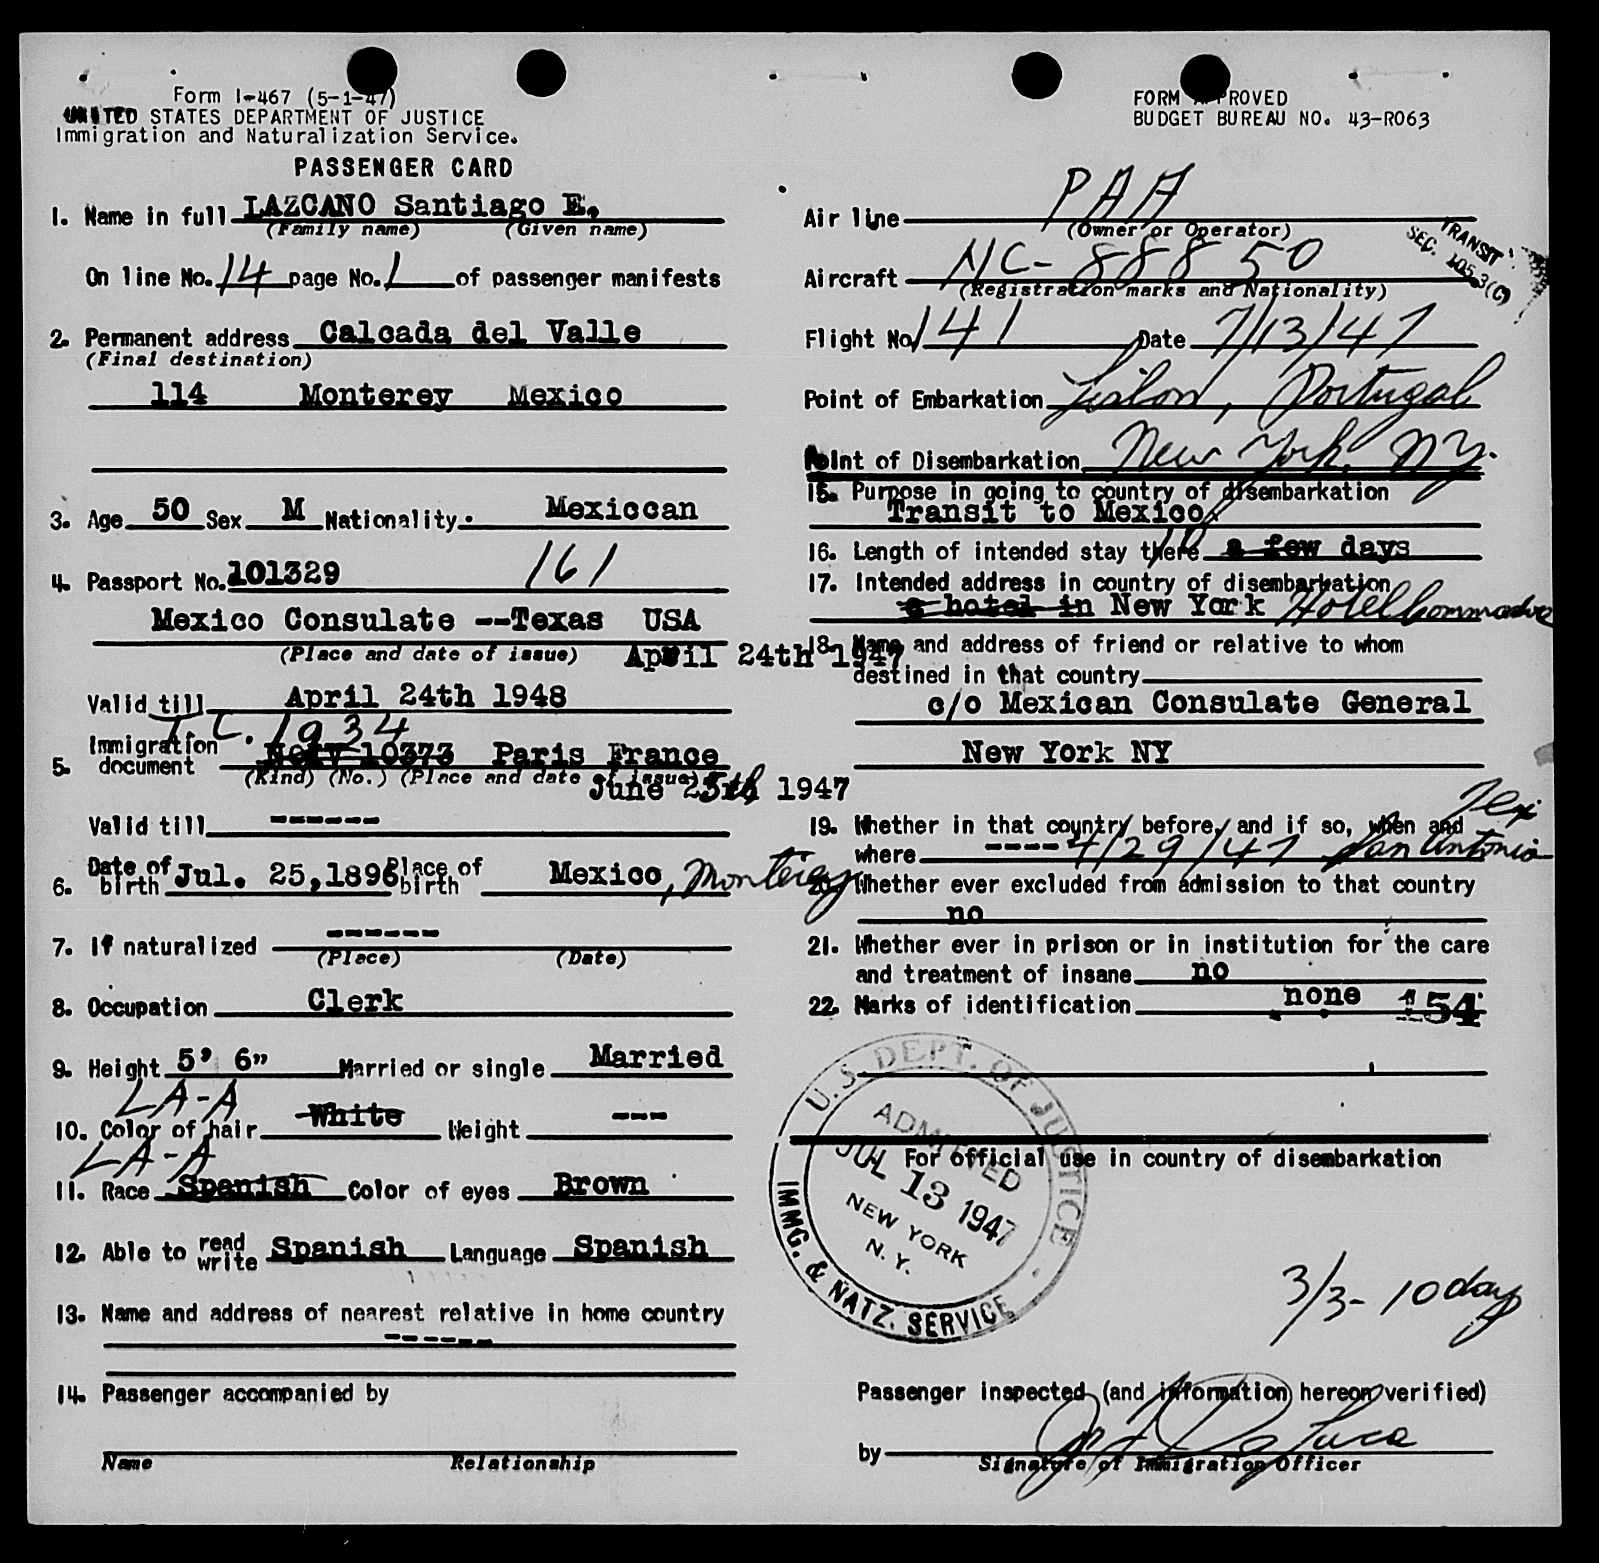 Form I-467 (5-1-47)
UNITED STATES DEPARTMENT OF JUSTICE
Immigration and Naturalization Service.
PASSENGER CARD
1. Name in full LAZCANO Santiago E.
(Family name) (Given name)
On line No. 14 page No. 1 of passenger manifests
2. Permanent address Calcada del Valle
(Final destination)
114 Monterey Mexico
3. Age 50 Sex M Nationality. Mexiccan
4. Passport No. 101329 161
Mexico Consulate --Texas USA
(Place and date of issue) April 24th 1947
Valid till April 24th 1948
T.C. 1934
5. Immigration document NoIV 10373 Paris France
(Kind) (No.) (Place and date of issue)
June 25th 1947
Valid till ------
6. Date of birth Jul. 25,1896 Place of birth Mexico, Monterey
7. If naturalized ------
(Place) (Date)
8. Occupation Clerk
9. Height 5' 6" Married or single Married
LA-A
10. Color of hair White Weight ---
LA-A
11. Race Spanish Color of eyes Brown
12. Able to read write Spanish Language Spanish
13. Name and address of nearest relative in home country
------
14. Passenger accompanied by
Name Relationship
FORM APPROVED
BUDGET BUREAU NO. 43-R063
Air line PAA
(Owner or Operator)
TRANSIT
SEC. 105.3(C)
Aircraft NC-88850
(Registration marks and Nationality)
Flight No. 141 Date 7/13/47
Point of Embarkation Lisbon, Portugal
Point of Disembarkation New York, NY.
15. Purpose in going to country of disembarkation
Transit to Mexico
16. Length of intended stay there 10 a few days
17. Intended address in country of disembarkation
a hotel in New York Hotel Commodore
18. Name and address of friend or relative to whom
destined in that country
c/o Mexican Consulate General
New York NY
Tex
19. Whether in that country before, and if so, when and
where ---- 4/29/47 San Antonio
20. Whether ever excluded from admission to that country
no
21. Whether ever in prison or in institution for the care
and treatment of insane no
22. Marks of identification none 54
U.S. DEPT. OF JUSTICE
ADMITTED
JUL 13 1947
NEW YORK
N. Y.
IMMG. & NATZ. SERVICE
For official use in country of disembarkation
3/3- 10 day
Passenger inspected (and information hereon verified)
by
Signature of Immigration Officer